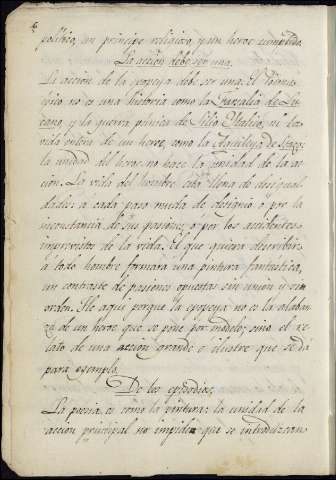 6
político, un príncipe religioso, y un heroe cumplido.
La acción debe ser una.
La accion de la epopeya debe ser una. El poema
épico no es una historia como la Farsalia de Lu-
cano, y la guerra púnica de Silio Italico; ni la
vida entera de un heroe, como la Aquileyda de Stacio:
la unidad del heroe no hace la unidad de la ac-
ción. La vida del hombre está llena de desigual-
dades: á cada paso muda de designio ó por la
inconstancia de sus pasiones, ó por los accidentes
imprevistos de la vida. El que quiera describir
á todo hombre formará una pintura fantastica,
un contraste de pasiones opuestas sin unión y sin
orden. He aqui porque la epopeya no es la alaban-
za de un heroe que se pone por modelo; sino el re-
lato de una acción grande é ilustre que se dá
para exemplo.
De los episodios.
La poesia es como la pintura: la unidad de la
accion principal no impide que se introduzcan